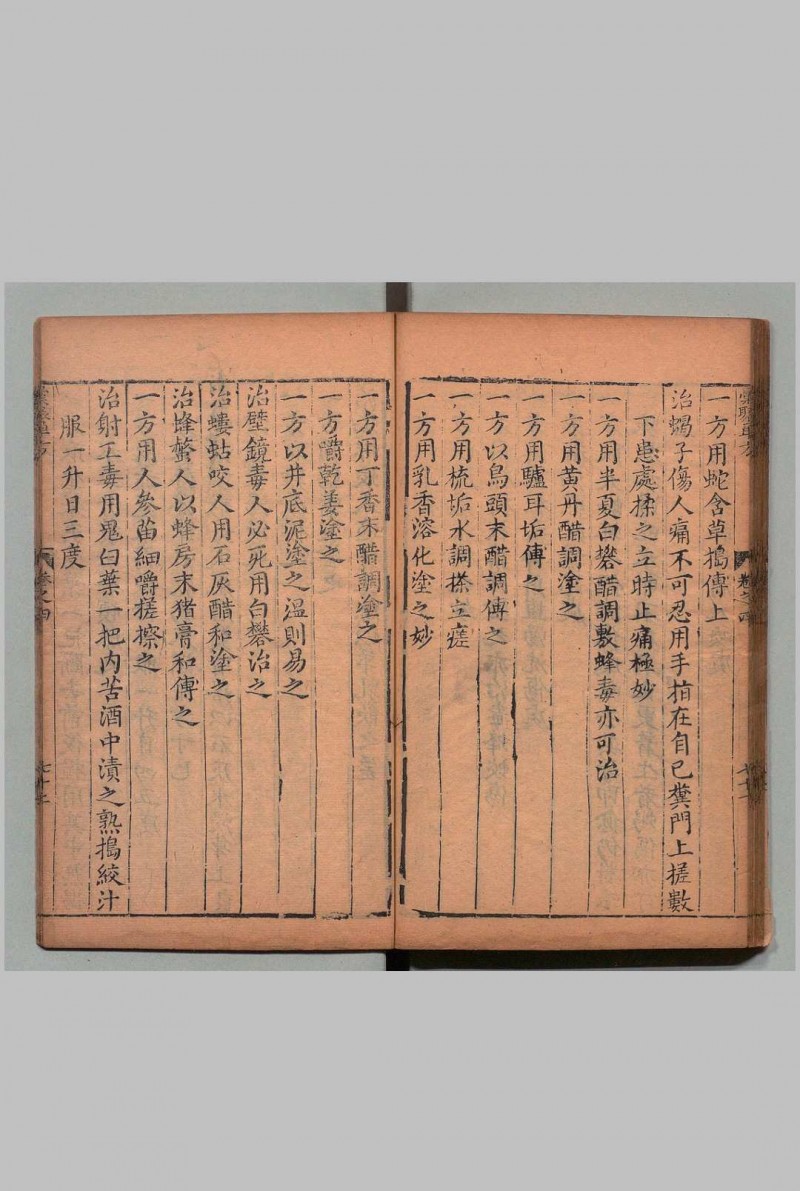 一方用蛇含草搗傅上
治蝎子傷人痛不可忍用手指在自己糞門上搓數
下患處揉之立時止痛極妙
一方用半夏白礬醋調敷蜂毒亦可治
一方用黃丹醋調塗之
一方用驢耳垢傅之
一方以烏頭末醋調傅之
一方用梳垢水調搽立瘥
一方用乳香溶化塗之妙
一方用丁香末醋調塗之
一方嚼乾姜塗之
一方以井底泥塗之溫則易之
治壁鏡毒人必死用白礬治之
治螻蛄咬人用石灰醋和塗之
治蜂螫人以蜂房末猪膏和傅之
一方用人參苗細嚼搓擦之
治射工毒用鬼臼葉一把內苦酒中漬之熟搗絞汁
服一升日三度
卷之四